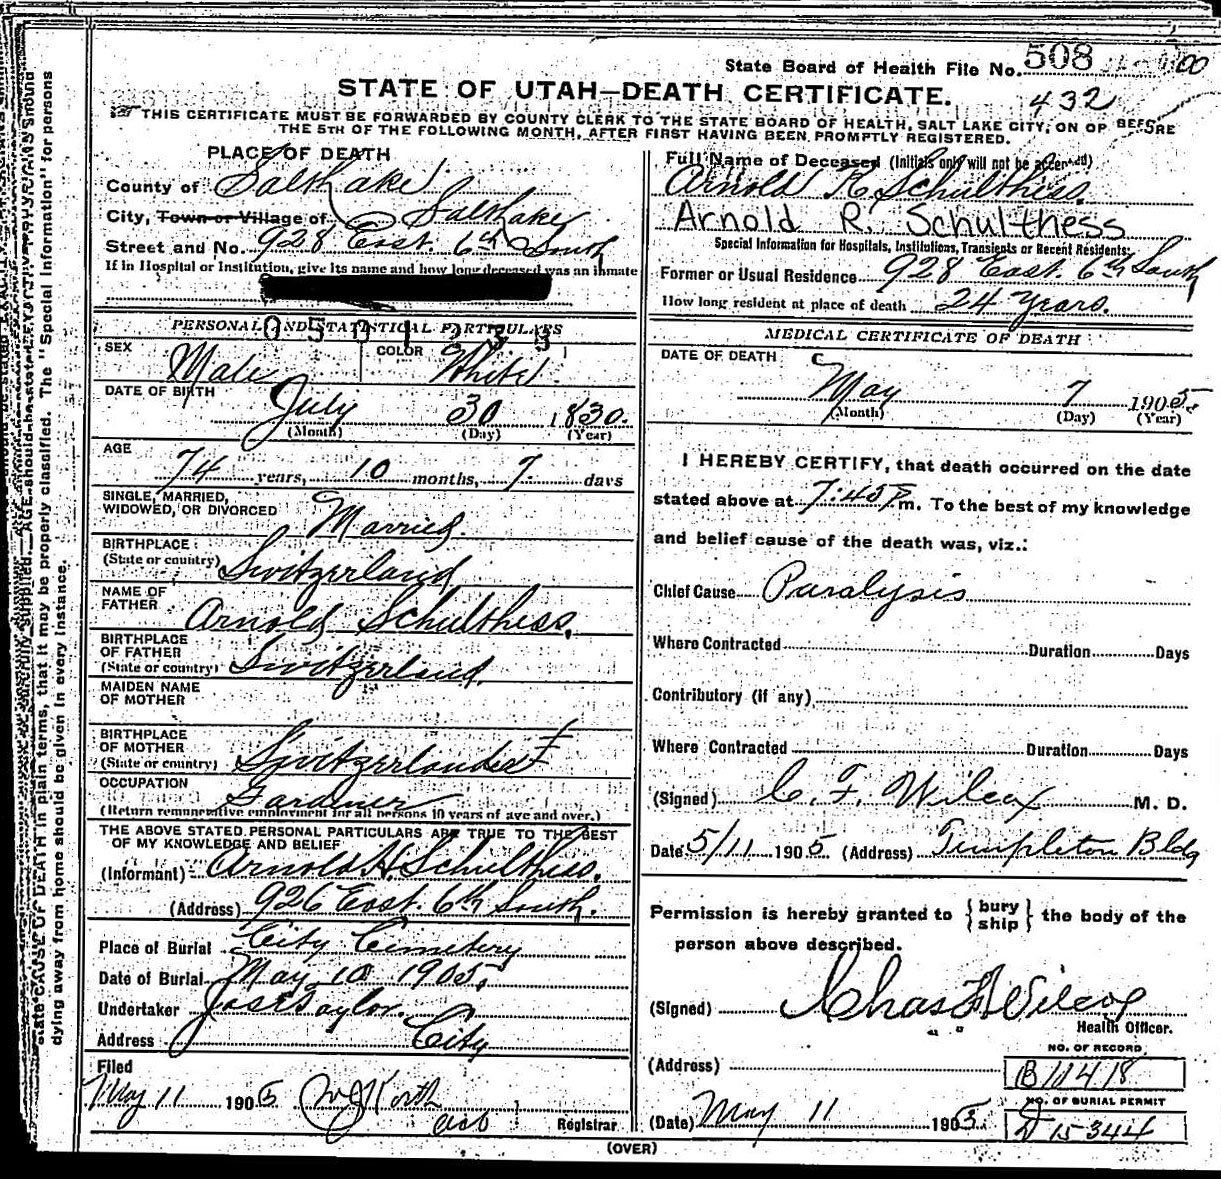 State Board of Health File No. 508
00
STATE OF UTAH—DEATH CERTIFICATE.
432
THIS CERTIFICATE MUST BE FORWARDED BY COUNTY CLERK TO THE STATE BOARD OF HEALTH, SALT LAKE CITY, ON OR BEFORE
THE 5TH OF THE FOLLOWING MONTH, AFTER FIRST HAVING BEEN PROMPTLY REGISTERED.
PLACE OF DEATH
County of Salt Lake
City, Town or Village of Salt Lake
Street and No. 928 East 6th South
If in Hospital or Institution, give its name and how long deceased was an inmate
Full Name of Deceased (Initials only will not be accepted)
Arnold R. Schulthess.
Arnold R. Schulthess
Special Information for Hospitals, Institutions, Transients or Recent Residents:
Former or Usual Residence 928 East 6th South
How long resident at place of death 24 Years.
PERSONAL AND STATISTICAL PARTICULARS
0501233
SEX Male COLOR White
DATE OF BIRTH July 30 1830.
(Month) (Day) (Year)
AGE
74 years, 10 months, 7 days
SINGLE, MARRIED,
WIDOWED, OR DIVORCED Married.
BIRTHPLACE
(State or country) Switzerland
NAME OF
FATHER Arnold Schulthess.
BIRTHPLACE
OF FATHER
(State or country) Switzerland.
MAIDEN NAME
OF MOTHER
BIRTHPLACE
OF MOTHER
(State or country) Switzerland
OCCUPATION
Gardiner
(Return remunerative employment for all persons 10 years of age and over.)
THE ABOVE STATED PERSONAL PARTICULARS ARE TRUE TO THE BEST
OF MY KNOWLEDGE AND BELIEF
(Informant) Arnold H. Schulthess.
(Address) 926 East 6th South.
Place of Burial City Cemetery
Date of Burial May 10 1905.
Undertaker Jos E Taylor.
Address City
Filed
May 11 1905
Registrar
MEDICAL CERTIFICATE OF DEATH
DATE OF DEATH
May 7 1905
(Month) (Day) (Year)
I HEREBY CERTIFY, that death occurred on the date
stated above at 7:45 P m. To the best of my knowledge
and belief cause of the death was, viz.:
Chief Cause Paralysis
Where Contracted Duration Days
Contributory (if any)
Where Contracted Duration Days
(Signed) C. F. Wilcox M. D.
Date 5/11 1905 (Address) Templeton Bldg
Permission is hereby granted to {bury
ship} the body of the
person above described.
(Signed) Chas F Wilcox
Health Officer.
NO. OF RECORD
(Address) B 11418
NO. OF BURIAL PERMIT
(Date) May 11 1905. D 15344
(OVER)
state CAUSE OF DEATH in plain terms, that it may be properly classified. The "Special Information" for persons
dying away from home should be given in every instance.